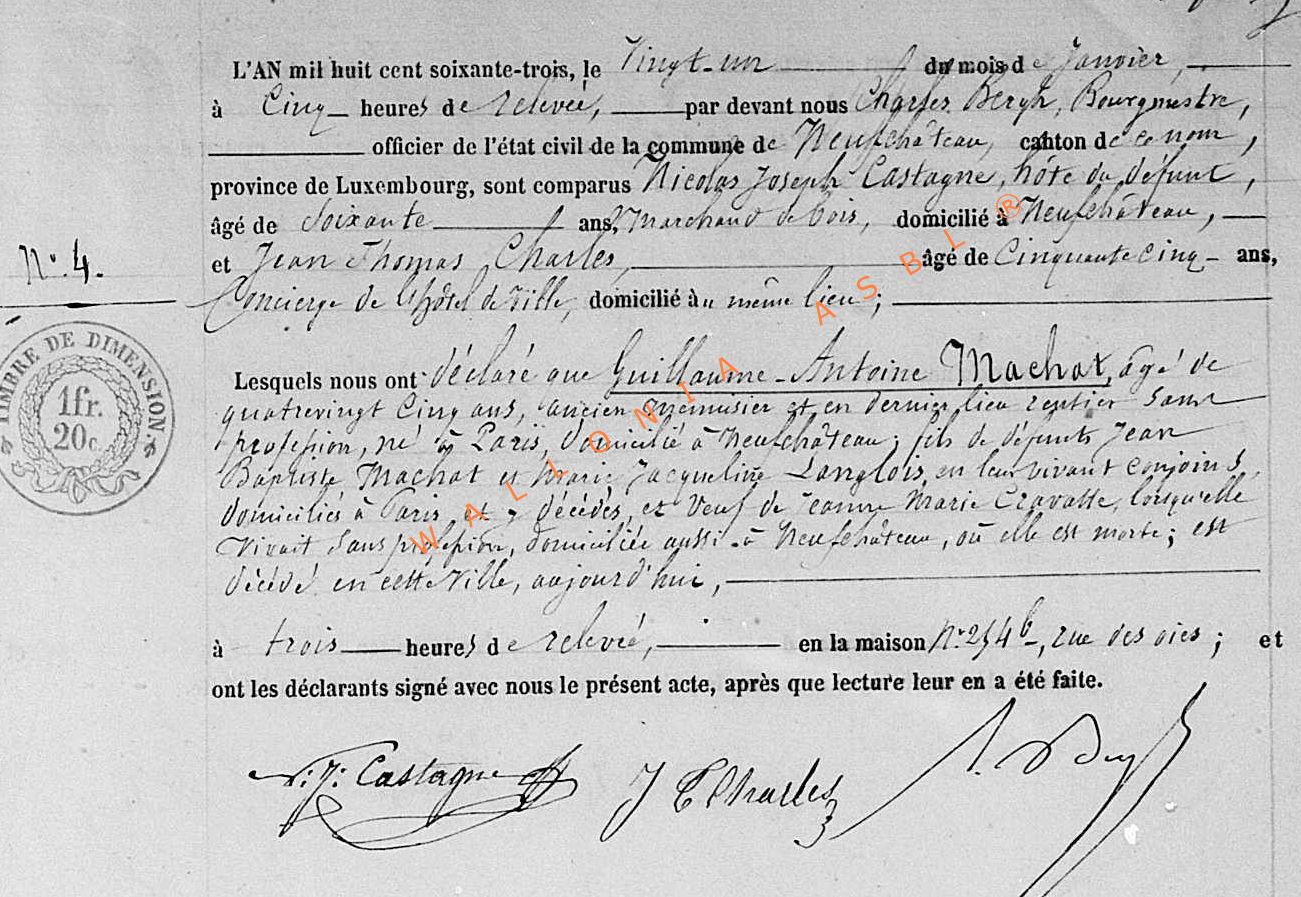 L'AN mil huit cent soixante-trois, le Vingt-un du mois de Janvier,
à Cinq heures de relevée, par devant nous Charles Bergh, Bourgmestre,
officier de l'état civil de la commune de Neufchâteau, canton de ce nom,
province de Luxembourg, sont comparus Nicolas Joseph Castagne, hôte du défunt,
âgé de Soixante ans, Marchand de bois, domicilié à Neufchâteau,
N°. 4.
et Jean Thomas Charles, âgé de Cinquante cinq ans,
Concierge de l'hôtel de Ville, domicilié au même lieu ;
TIMBRE DE DIMENSION.
1fr.
20c.
Lesquels nous ont déclaré que Guillaume-Antoine Machat, âgé de
quatrevingt cinq ans, ancien menuisier et en dernier lieu rentier sans
profession, né à Paris, domicilié à Neufchâteau ; fils de défunts Jean
Baptiste Machat et Marie Jacqueline Langlois, en leur vivant conjoins,
domiciliés à Paris et y décédés, et Veuf de Jeanne Marie Cravatte, lorsqu'elle
Vivait Sans profession, domiciliée aussi à Neufchâteau, où elle est morte ; est
décédé en cette Ville, aujourd'hui,
à trois heures de relevée, en la maison N° 254 b, rue des oies ; et
ont les déclarants signé avec nous le présent acte, après que lecture leur en a été faite.
N. J. Castagne J T Charles
WALLONIA ASBL ®